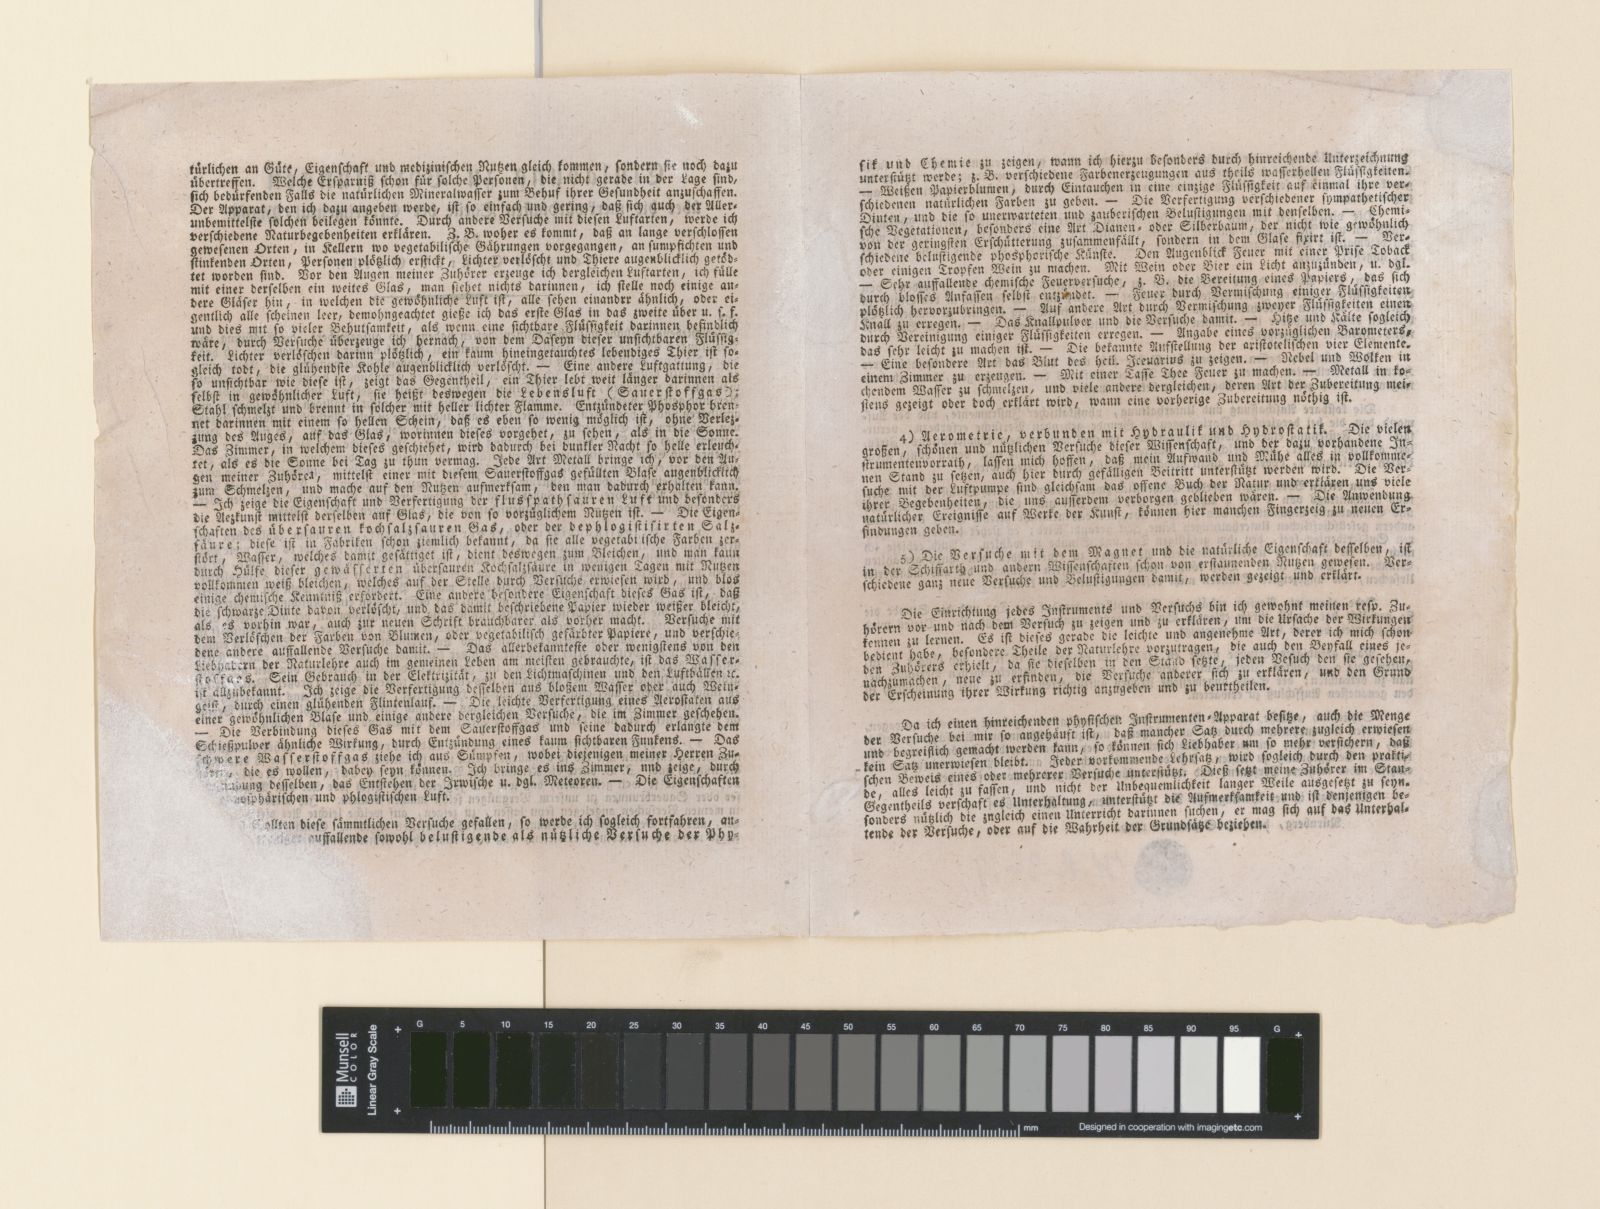 türlichen an Güte, Eigenschaft und medizinischen Nutzen gleich kommen, sondern sie noch dazu
übertreffen. Welche Ersparniß schon für solche Personen, die nicht gerade in der Lage sind,
sich bedürfenden Falls die natürlichen Mineralwasser zum Behuf ihrer Gesundheit anzuschaffen.
Der Apparat, den ich dazu angeben werde, ist so einfach und gering, daß sich auch der Aller-
unbemittelste solchen beilegen könnte. Durch andere Versuche mit diesen Luftarten, werde ich
verschiedene Naturbegebenheiten erklären. Z. B. woher es kommt, daß an lange verschlossen
gewesenen Orten, in Kellern wo vegetabilische Gährungen vorgegangen, an sumpfichten und
stinkenden Orten, Personen plötzlich erstickt, Lichter verlöscht und Thiere augenblicklich getöd-
tet worden sind. Vor den Augen meiner Zuhörer erzeuge ich dergleichen Luftarten, ich fülle
mit einer derselben ein weites Glas, man siehet nichts darinnen, ich stelle noch einige an-
dere Gläser hin, in welchen die gewöhnliche Luft ist, alle sehen einander ähnlich, oder ei-
gentlich alle scheinen leer, demohngeachtet gieße ich das erste Glas in das zweite über u. s. f.
und dies mit so vieler Behutsamkeit, als wenn eine sichtbare Flüssigkeit darinnen befindlich
wäre, durch Versuche überzeuge ich hernach, von dem Daseyn dieser unsichtbaren Flüssig-
keit. Lichter verlöschen darinn plötzlich, ein kaum hineingetauchtes lebendiges Thier ist so-
gleich todt, die glühendste Kohle augenblicklich verlöscht. — Eine andere Luftgattung, die
so unsichtbar wie diese ist, zeigt das Gegentheil, ein Thier lebt weit länger darinnen als
selbst in gewöhnlicher Luft, sie heißt deswegen die Lebensluft (Sauerstoffgas);
Stahl schmelzt und brennt in solcher mit heller lichter Flamme. Entzündeter Phosphor bren-
net darinnen mit einem so hellen Schein, daß es eben so wenig möglich ist, ohne Verlez-
zung des Auges, auf das Glas, worinnen dieses vorgehet, zu sehen, als in die Sonne.
Das Zimmer, in welchem dieses geschiehet, wird dadurch bei dunkler Nacht so helle erleuch-
tet, als es die Sonne bei Tag zu thun vermag. Jede Art Metall bringe ich, vor den Au-
gen meiner Zuhörer, mittelst einer mit diesem Sauerstoffgas gefüllten Blase augenblicklich
zum Schmelzen, und mache auf den Nutzen aufmerksam, den man dadurch erhalten kann.
— Ich zeige die Eigenschaft und Verfertigung der flusspathsauren Luft und besonders
die Aezkunst mittelst derselben auf Glas, die von so vorzüglichem Nutzen ist. — Die Eigen-
schaften des übersauren kochsalzsauren Gas, oder der dephlogistisirten Salz-
säure; diese ist in Fabriken schon ziemlich bekannt, da sie alle vegetabilische Farben zer-
stört, Wasser, welches damit gesättiget ist, dient deswegen zum Bleichen, und man kann
durch Hülfe dieser gewässerten übersauren Kochsalzsäure in wenigen Tagen mit Nutzen
vollkommen weiß bleichen, welches auf der Stelle durch Versuche erwiesen wird, und blos
einige chemische Kenntniß erfordert. Eine andere besondere Eigenschaft dieses Gas ist, daß
die schwarze Dinte davon verlöscht, und das damit beschriebene Papier wieder weißer bleicht,
als es vorhin war, auch zur neuen Schrift brauchbarer als vorher macht. Versuche mit
dem Verlöschen der Farben von Blumen, oder vegetabilisch gefärbter Papiere, und verschie-
dene andere auffallende Versuche damit. — Das allerbekannteste oder wenigstens von den
Liebhabern der Naturlehre auch im gemeinen Leben am meisten gebrauchte, ist das Wasser-
stoffgas. Sein Gebrauch in der Elektrizität, zu den Lichtmaschinen und den Luftbällen ꝛc.
ist allzubekannt. Ich zeige die Verfertigung desselben aus bloßem Wasser oder auch Wein-
geist, durch einen glühenden Flintenlauf. — Die leichte Verfertigung eines Aerostaten aus
einer gewöhnlichen Blase und einige andere dergleichen Versuche, die im Zimmer geschehen.
— Die Verbindung dieses Gas mit dem Sauerstoffgas und seine dadurch erlangte dem
Schießpulver ähnliche Wirkung, durch Entzündung eines kaum sichtbaren Funkens. — Das
schwere Wasserstoffgas ziehe ich aus Sümpfen, wobei diejenigen meiner Herren Zu-
hörer, die es wollen, dabey seyn können. Ich bringe es ins Zimmer, und zeige, durch
desselben, das Entstehen der Irwische u. dgl. Meteoren. — Die Eigenschaften
und phlogistischen Luft.
Sollten diese sämmtlichen Versuche gefallen, so werde ich sogleich fortfahren, an-
auffallende sowohl belustigende als nützliche Versuche der Phy-
sik und Chemie zu zeigen, wann ich hierzu besonders durch hinreichende Unterzeichnung
unterstützt werde; z. B. verschiedene Farbenerzeugungen aus theils wasserhellen Flüssigkeiten.
— Weißen Papierblumen, durch Eintauchen in eine einzige Flüssigkeit auf einmal ihre ver-
schiedenen natürlichen Farben zu geben. — Die Verfertigung verschiedener sympathetischer
Dinten, und die so unerwarteten und zauberischen Belustigungen mit denselben. — Chemi-
sche Vegetationen, besonders eine Art Dianen- oder Silberbaum, der nicht wie gewöhnlich
von der geringsten Erschütterung zusammenfällt, sondern in dem Glase fixirt ist. — Ver-
schiedene belustigende phosphorische Künste. Den Augenblick Feuer mit einer Prise Toback
oder einigen Tropfen Wein zu machen. Mit Wein oder Bier ein Licht anzuzünden, u. dgl.
— Sehr auffallende chemische Feuerversuche, z. B. die Bereitung eines Papiers, das sich
durch blosses Anfassen selbst entzündet. — Feuer durch Vermischung einiger Flüssigkeiten
plötzlich hervorzubringen. — Auf andere Art durch Vermischung zweyer Flüssigkeiten einen
Knall zu erregen. — Das Knallpulver und die Versuche damit. — Hitze und Kälte sogleich
durch Vereinigung einiger Flüssigkeiten erregen. — Angabe eines vorzüglichen Barometers,
das sehr leicht zu machen ist. — Die bekannte Aufstellung der aristotelischen vier Elemente.
— Eine besondere Art das Blut des heil. Jcenuarius zu zeigen. — Nebel und Wolken in
einem Zimmer zu erzeugen. — Mit einer Tasse Thee Feuer zu machen. — Metall in ko-
chendem Wasser zu schmelzen, und viele andere dergleichen, deren Art der Zubereitung mei-
stens gezeigt oder doch erklärt wird, wann eine vorherige Zubereitung nöthig ist.
4) Aerometrie, verbunden mit Hydraulik und Hydrostatik. Die vielen
großen, schönen und nützlichen Versuche dieser Wissenschaft, und der dazu vorhandene In-
strumentenvorrath, lassen mich hoffen, daß mein Aufwand und Mühe alles in vollkomme-
nen Stand zu setzen, auch hier durch gefälligen Beitritt unterstützt werden wird. Die Ver-
suche mit der Luftpumpe sind gleichsam das offene Buch der Natur und erklären uns viele
ihrer Begebenheiten, die uns ausserdem verborgen geblieben wären. — Die Anwendung
natürlicher Ereignisse auf Werke der Kunst, können hier manchen Fingerzeig zu neuen Er-
findungen geben.
5) Die Versuche mit dem Magnet und die natürliche Eigenschaft desselben, ist
in der Schiffarth und andern Wissenschaften schon von erstaunenden Nutzen gewesen. Ver-
schiedene ganz neue Versuche und Belustigungen damit, werden gezeigt und erklärt.
Die Einrichtung jedes Instruments und Versuchs bin ich gewohnt meinen resp. Zu-
hörern vor und nach dem Versuch zu zeigen und zu erklären, um die Ursache der Wirkungen
kennen zu lernen. Es ist dieses gerade die leichte und angenehme Art, derer ich mich schon
bedient habe, besondere Theile der Naturlehre vorzutragen, die auch den Beyfall eines je-
den Zuhörers erhielt, da sie dieselben in den Stand setzte, jeden Vesuch den sie gesehen,
nachzumachen, neue zu erfinden, die Versuche anderer sich zu erklären, und den Grund
der Erscheinung ihrer Wirkung richtig anzugeben und zu beurtheilen.
Da ich einen hinreichenden physischen Instrumenten-Apparat besitze, auch die Menge
der Versuche bei mir so angehäuft ist, daß mancher Satz durch mehrere zugleich erwiesen
und begreiflich gemacht werden kann, so können sich Liebhaber um so mehr versichern, daß
kein Satz unerwiesen bleibt. Jeder vorkommende Lehrsatz, wird sogleich durch den prakti-
schen Beweis eines oder mehrerer Versuche unterstützt. Dieß setzt meine Zuhörer im Stan-
de, alles leicht zu fassen, und nicht der Unbequemlichkeit langer Weile ausgesetzt zu seyn.
Gegentheils verschaft es Unterhaltung, unterstützt die Aufmerksamkeit und ist denjenigen be-
sonders nützlich die zugleich einen Unterricht darinnen suchen, er mag sich auf das Unterhal-
tende der Versuche, oder auf die Wahrheit der Grundsätze beziehen.
Munsell
COLOR
Linear Gray Scale
G 5 10 15 20 25 30 35 40 45 50 55 60 65 70 75 80 85 90 95 G
mm
Designed in cooperation with imagingetc.com